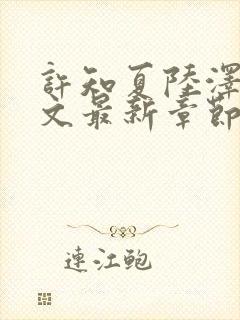 許知夏陸澤
文最新章節
連江鮑